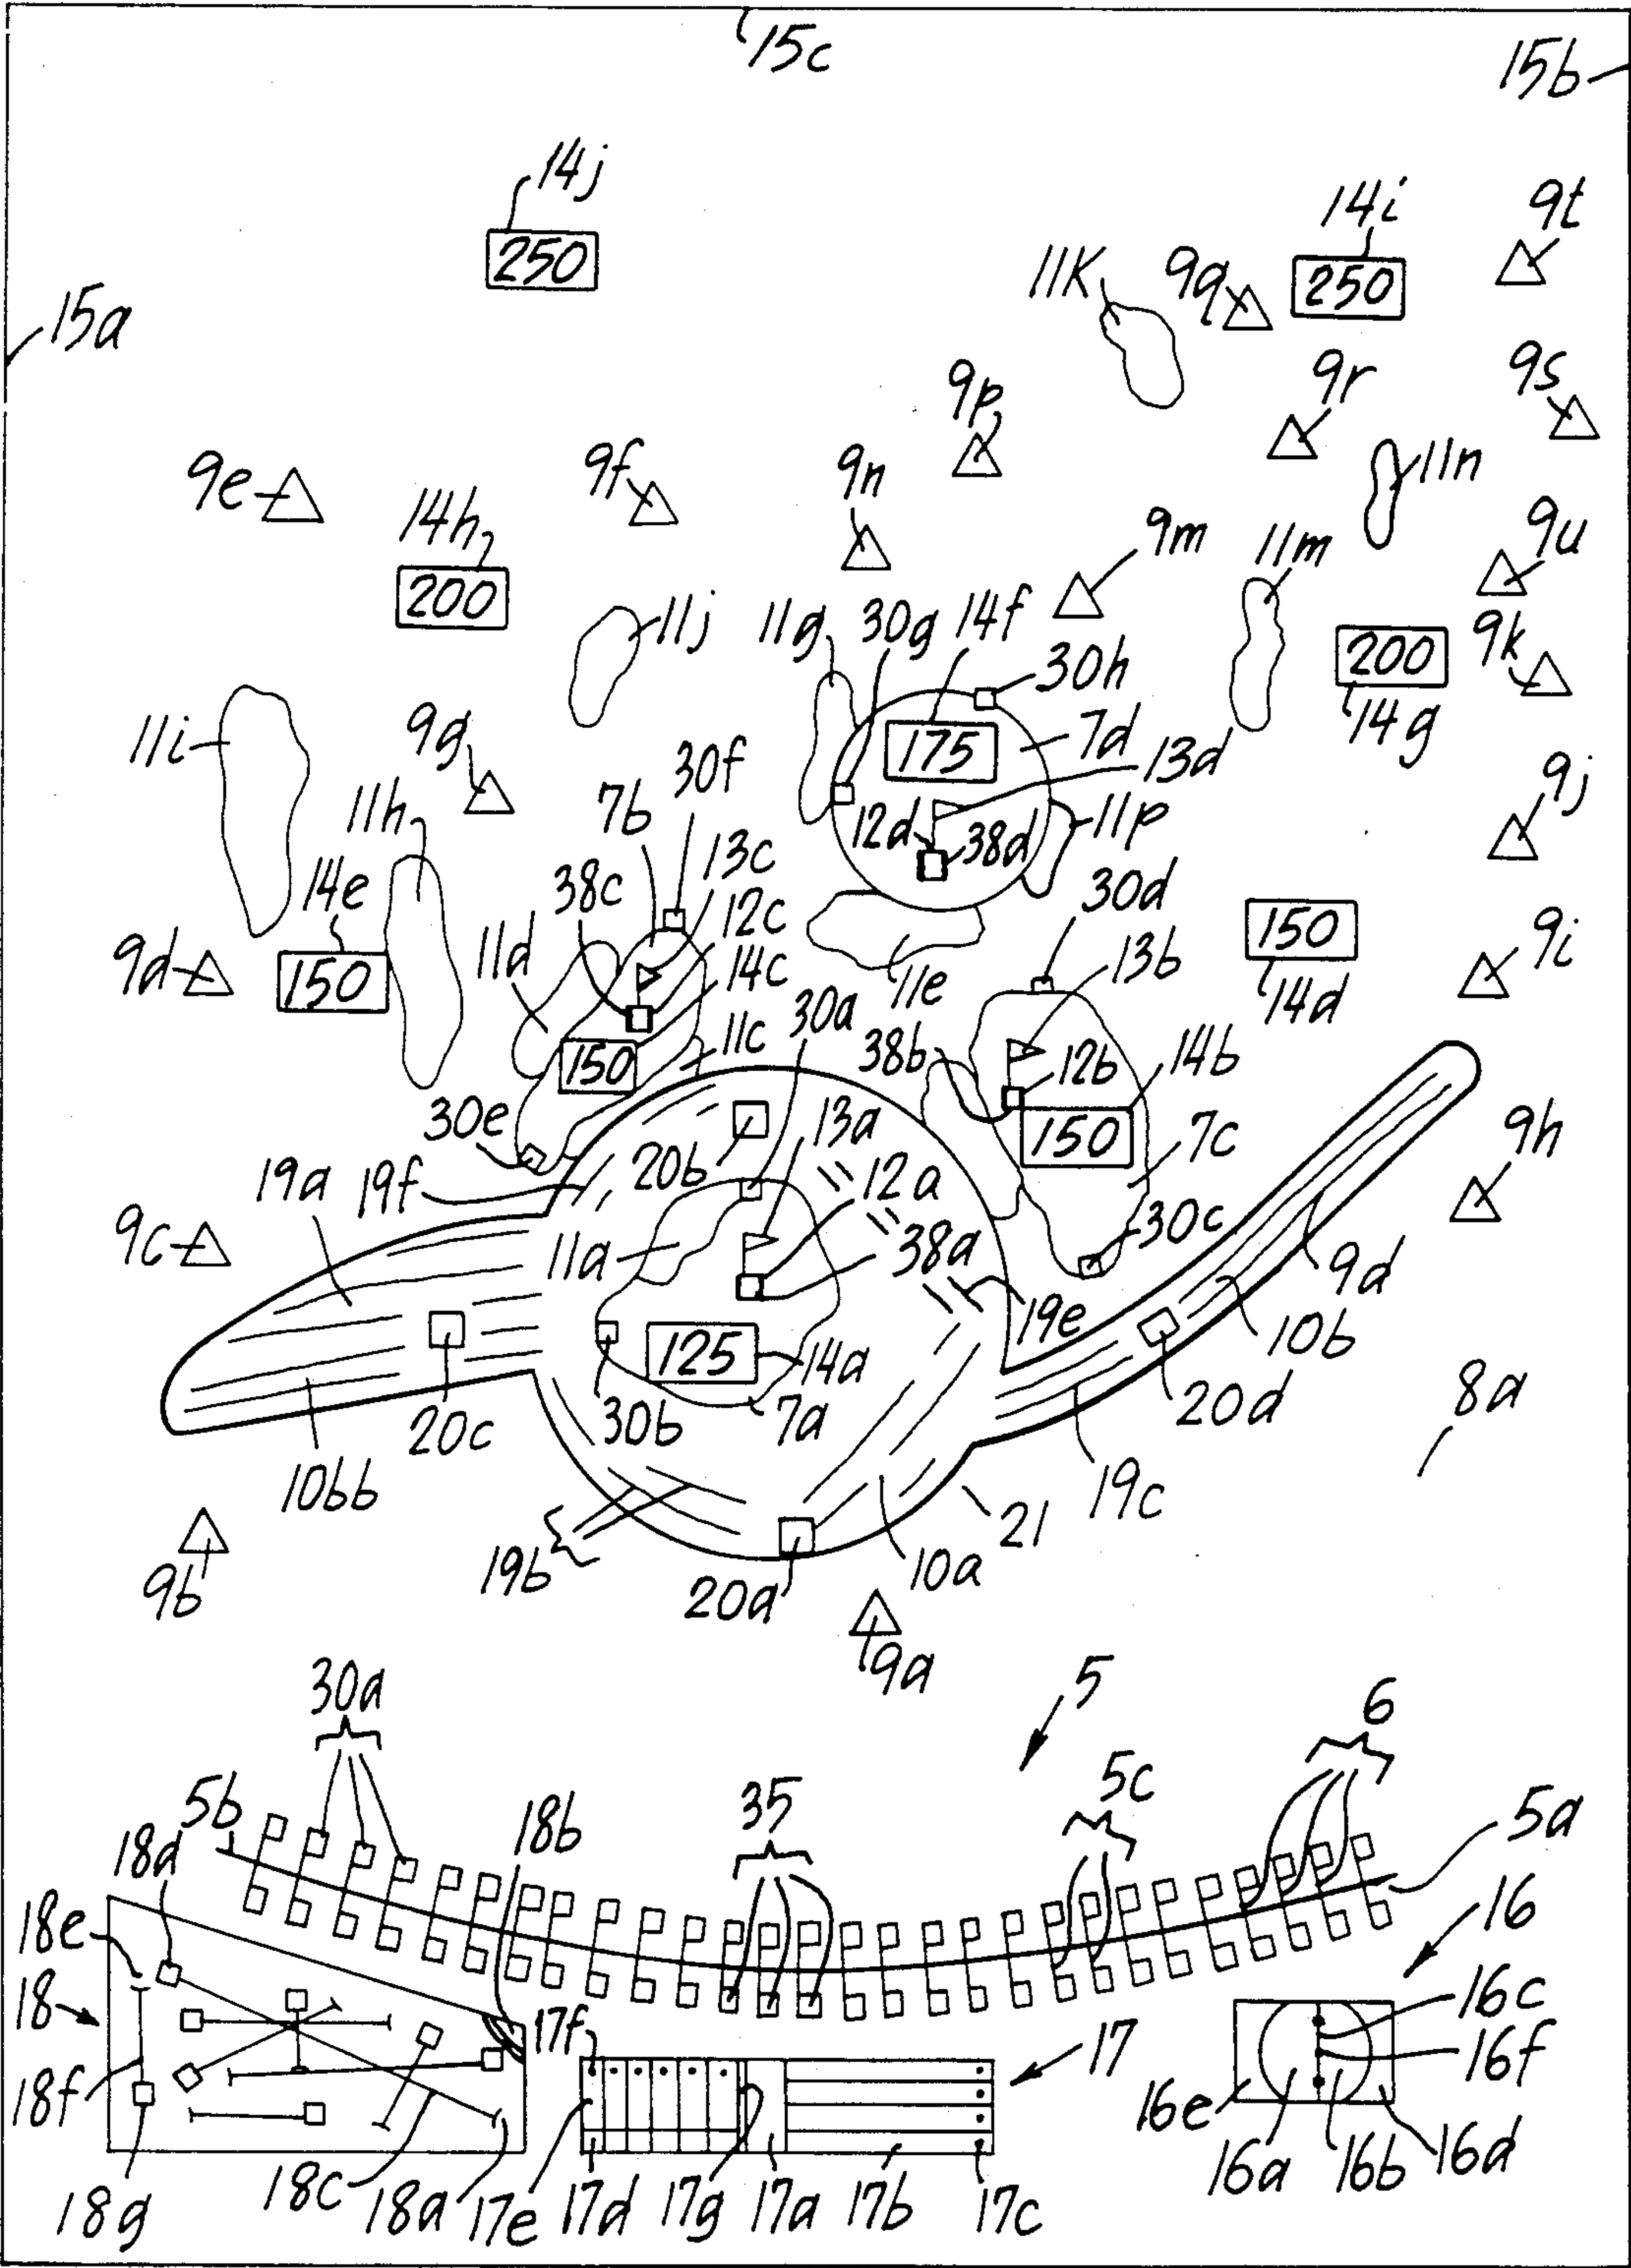 15c
15b
14j
250
14i
9t
250
11K
9q
15a
9p
9r
9s
9e
9f
9n
11n
14h
200
9m
11m
9u
11j
11g
30g
14f
30h
200
9k
14g
11i
9g
30f
175
7d
13d
9j
11h
7b
12d
38d
11p
14e
38c
13c
12c
30d
150
9d
150
11d
14c
11e
13b
14d
9i
150
11c
30a
38b
12b
14b
150
30e
20b
13a
7c
9h
19a
19f
12a
9c
11a
38a
30c
9d
19e
10b
125
14a
20c
30b
7a
20d
8a
10bb
19c
21
19b
10a
9b
20a
9a
30a
5
6
5b
18b
35
5c
5a
18d
18e
16
18
17f
17
16c
18f
16f
16e
16a
16b
16d
18g
18c
18a
17e
17d
17g
17a
17b
17c